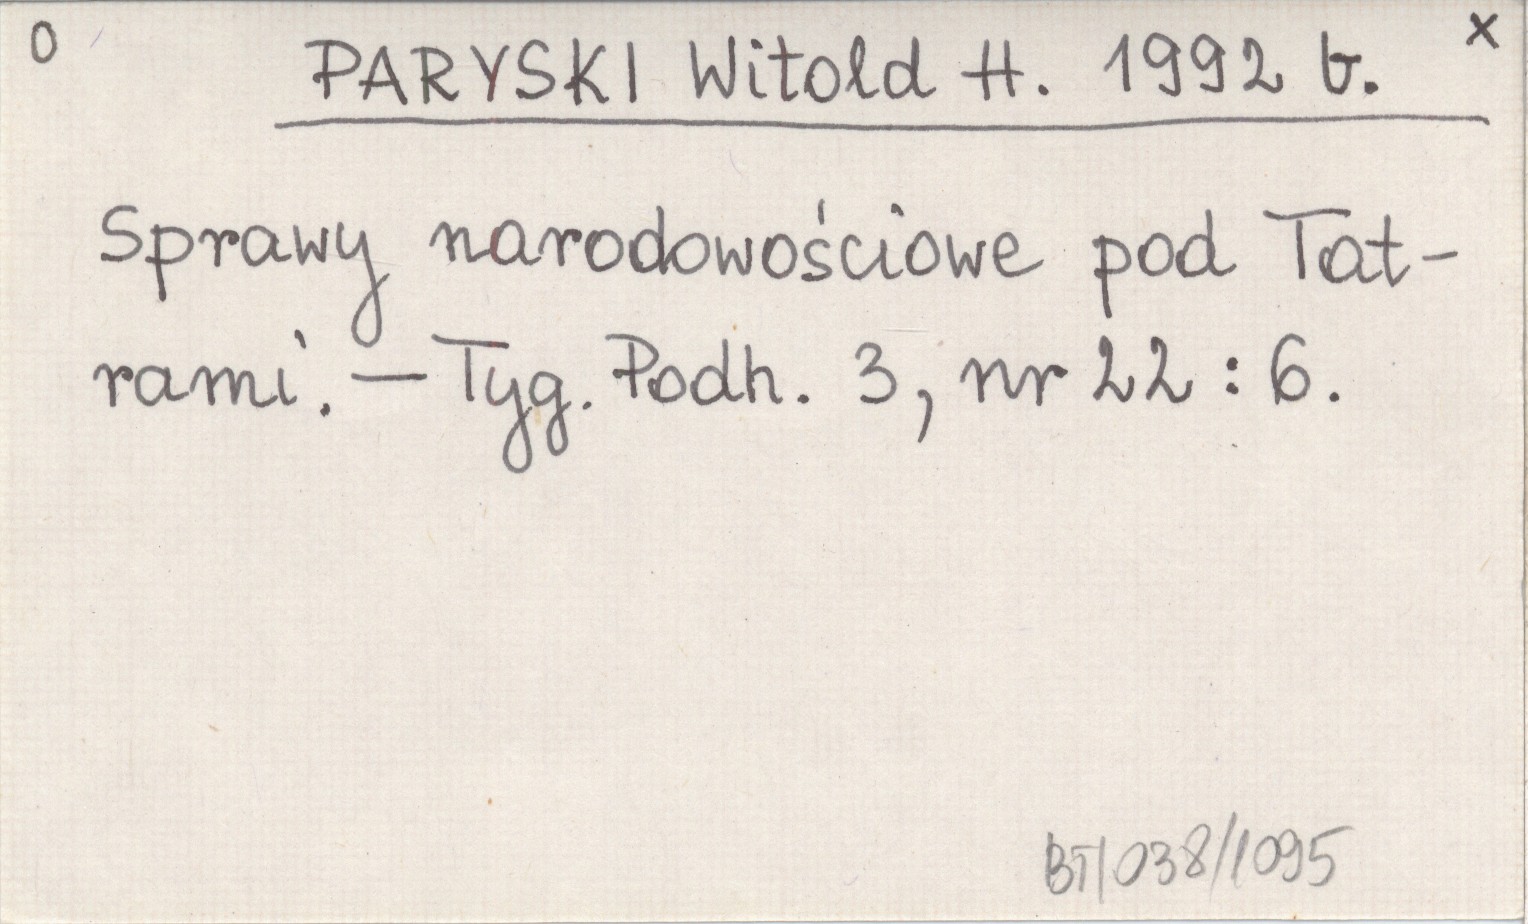 0 PARYSKI Witold H. 1992 b. x
Sprawy narodowościowe pod Tat-
rami. — Tyg. Podh. 3, nr 22 : 6.
BT/038/1095